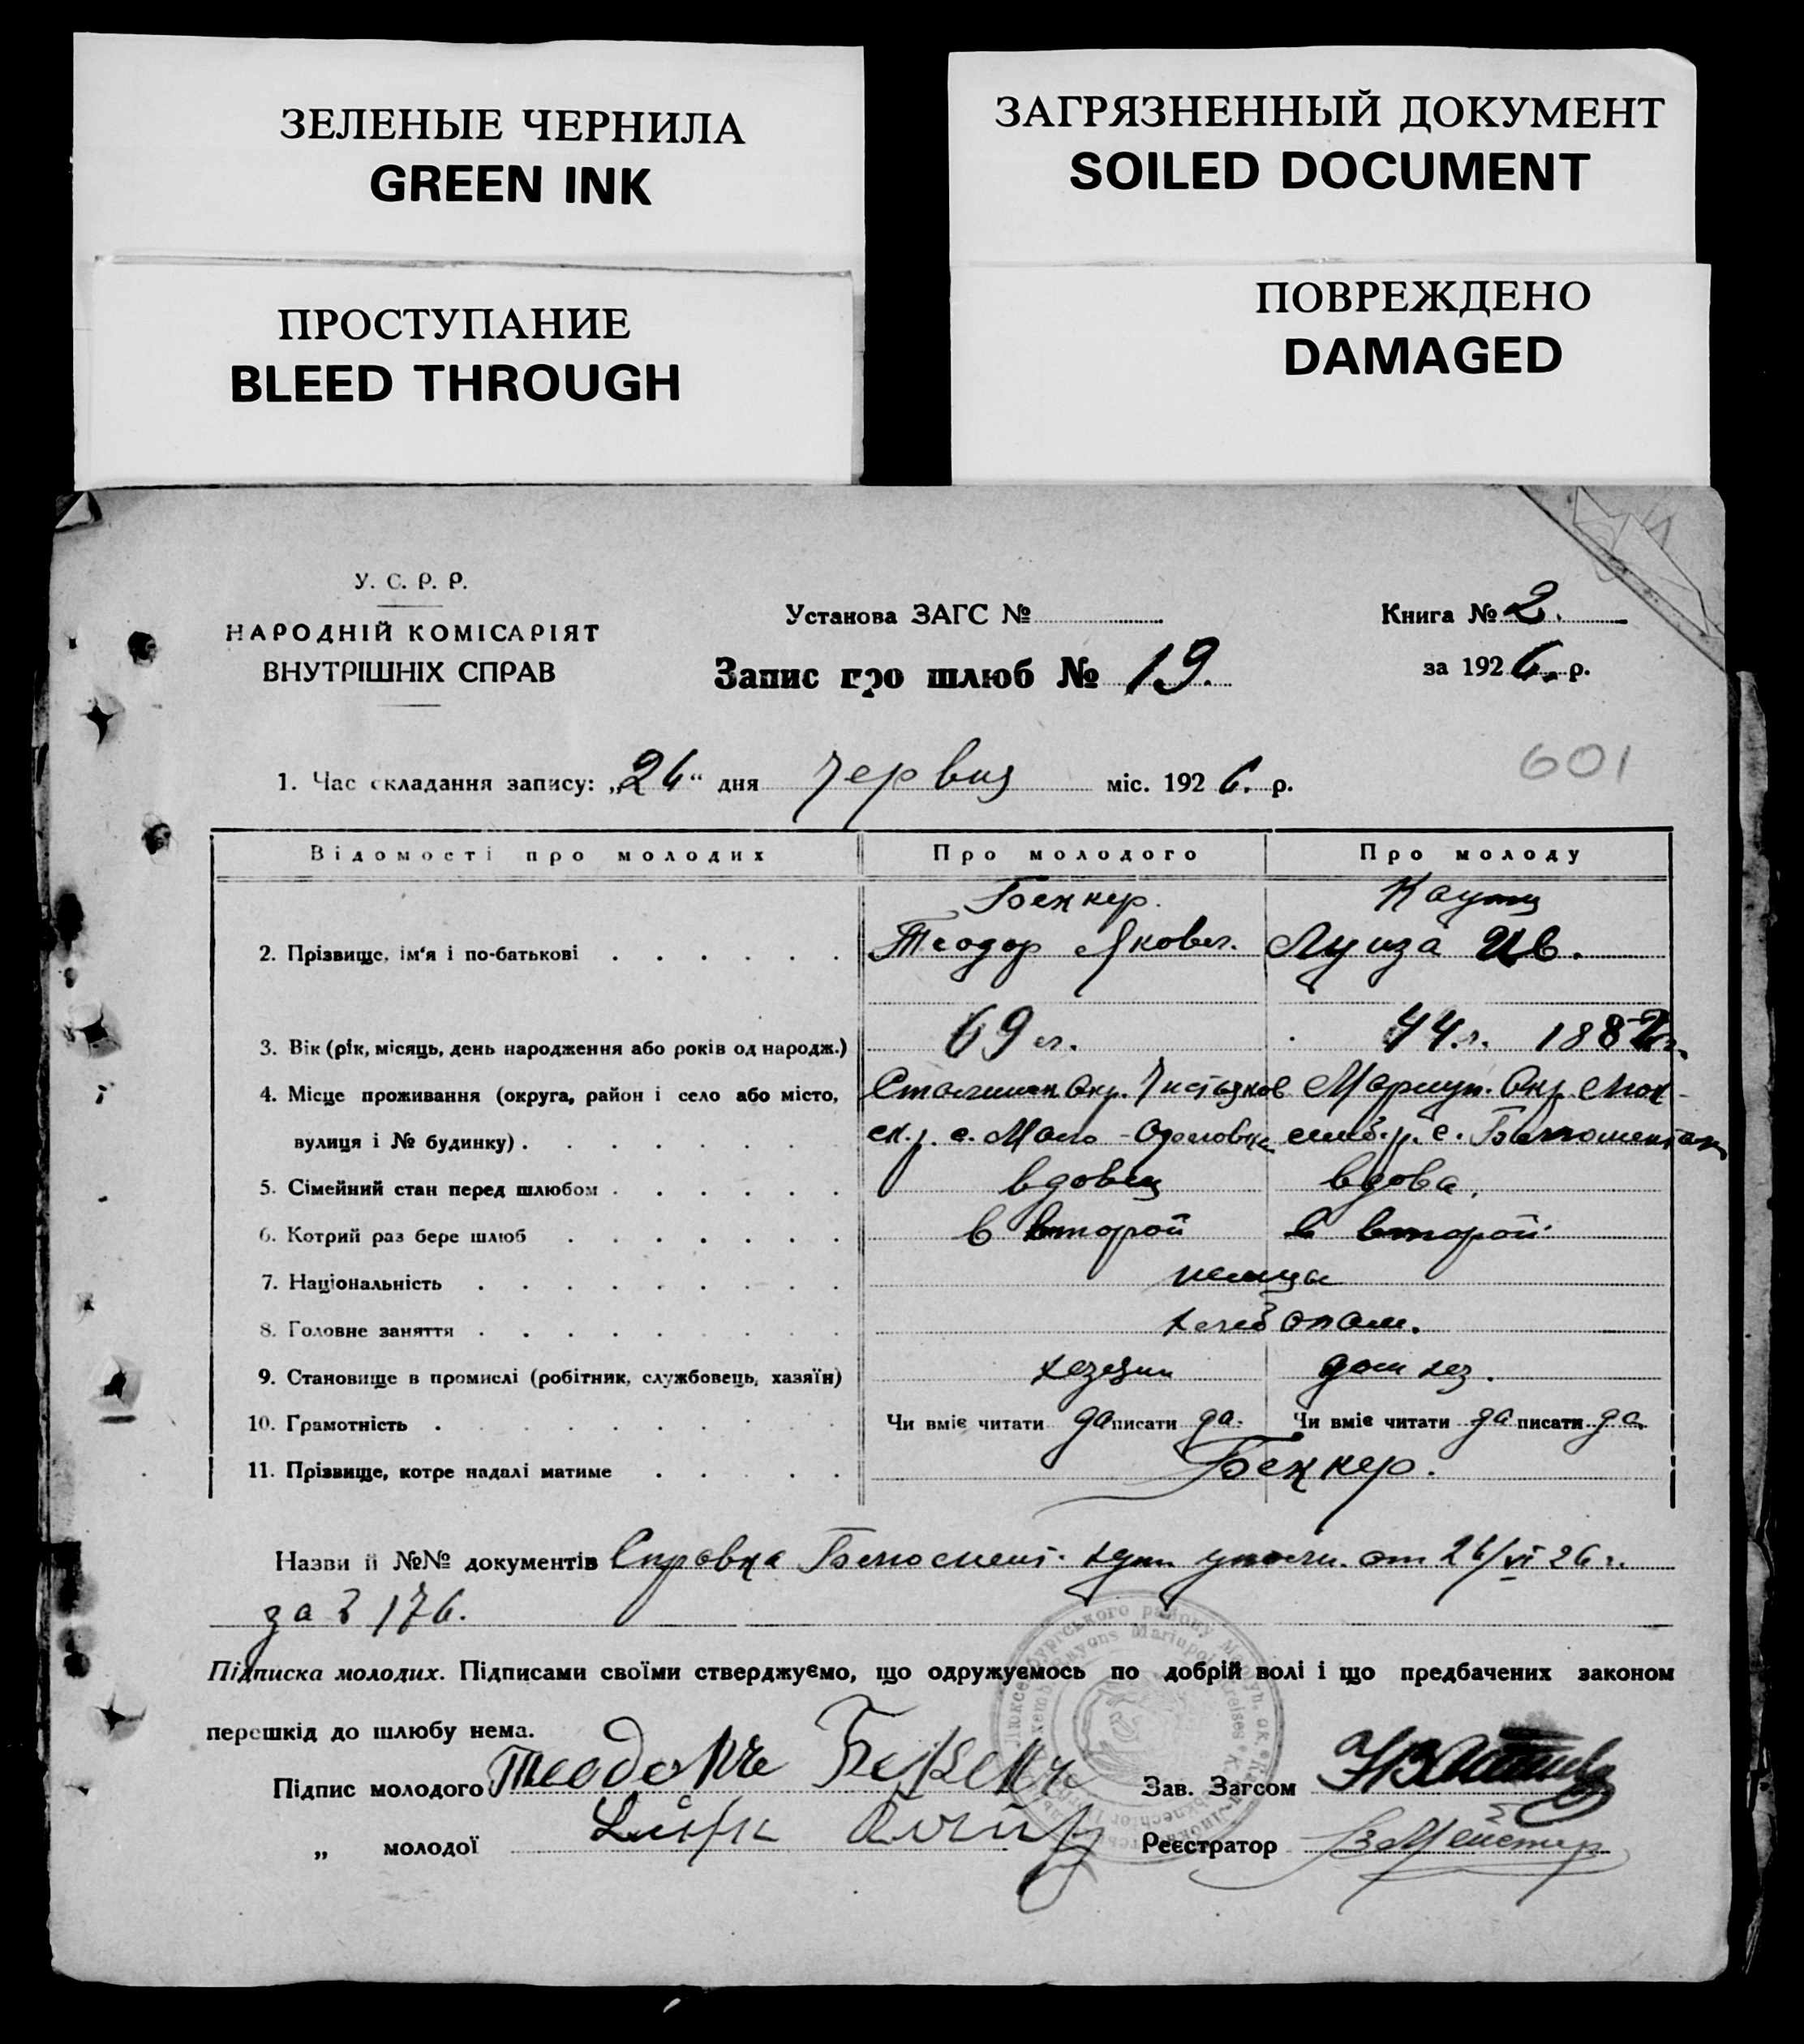 ЗЕЛЕНЫЕ ЧЕРНИЛА
GREEN INK
ПРОСТУПАНИЕ
BLEED THROUGH
ЗАГРЯЗНЕННЫЙ ДОКУМЕНТ
SOILED DOCUMENT
ПОВРЕЖДЕНО
DAMAGED
У. С. Р. Р.
НАРОДНІЙ КОМІСАРІЯТ
ВНУТРІШНІХ СПРАВ
Установа ЗАГС №
Запис про шлюб № 19.
Книга № 2.
за 1926. р.
601
1. Час складання запису: „26“ дня червня міс. 1926. р.
Відомості про молодих Про молодого Про молоду
Беккер. Каутц
2. Прізвище, ім'я і по-батькові Теодор Яковл. Луиза Ив.
3. Вік (рік, місяць, день народження або років од народж.) 69 л. 44 л. 1882 г.
4. Місце проживання (округа, район і село або місто, Сталинск Окр. Чистяков Мариуп. Окр. Люк-
вулиця і № будинку) ск. р. с. Мало-Орловка семб. р. с.
5. Сімейний стан перед шлюбом вдовец вдова.
6. Котрий раз бере шлюб в второй в второй
7. Національність немцы
8. Головне заняття хлебопаш.
9. Становище в промислі (робітник, службовець, хазяїн) хозяин дом хоз.
10. Грамотність Чи вміє читати да писати да. Чи вміє читати да писати да
11. Прізвище, котре надалі матиме Беккер.
Назви й №№ документів Справка от 26/VI 26 г.
за № 176.
Підписка молодих. Підписами своїми стверджуємо, що одружуємось по добрій волі і що предбачених законом
перешкід до шлюбу нема.
Підпис молодого Теодоръ Бекеръ Зав. Загсом
„ молодої Реєстратор